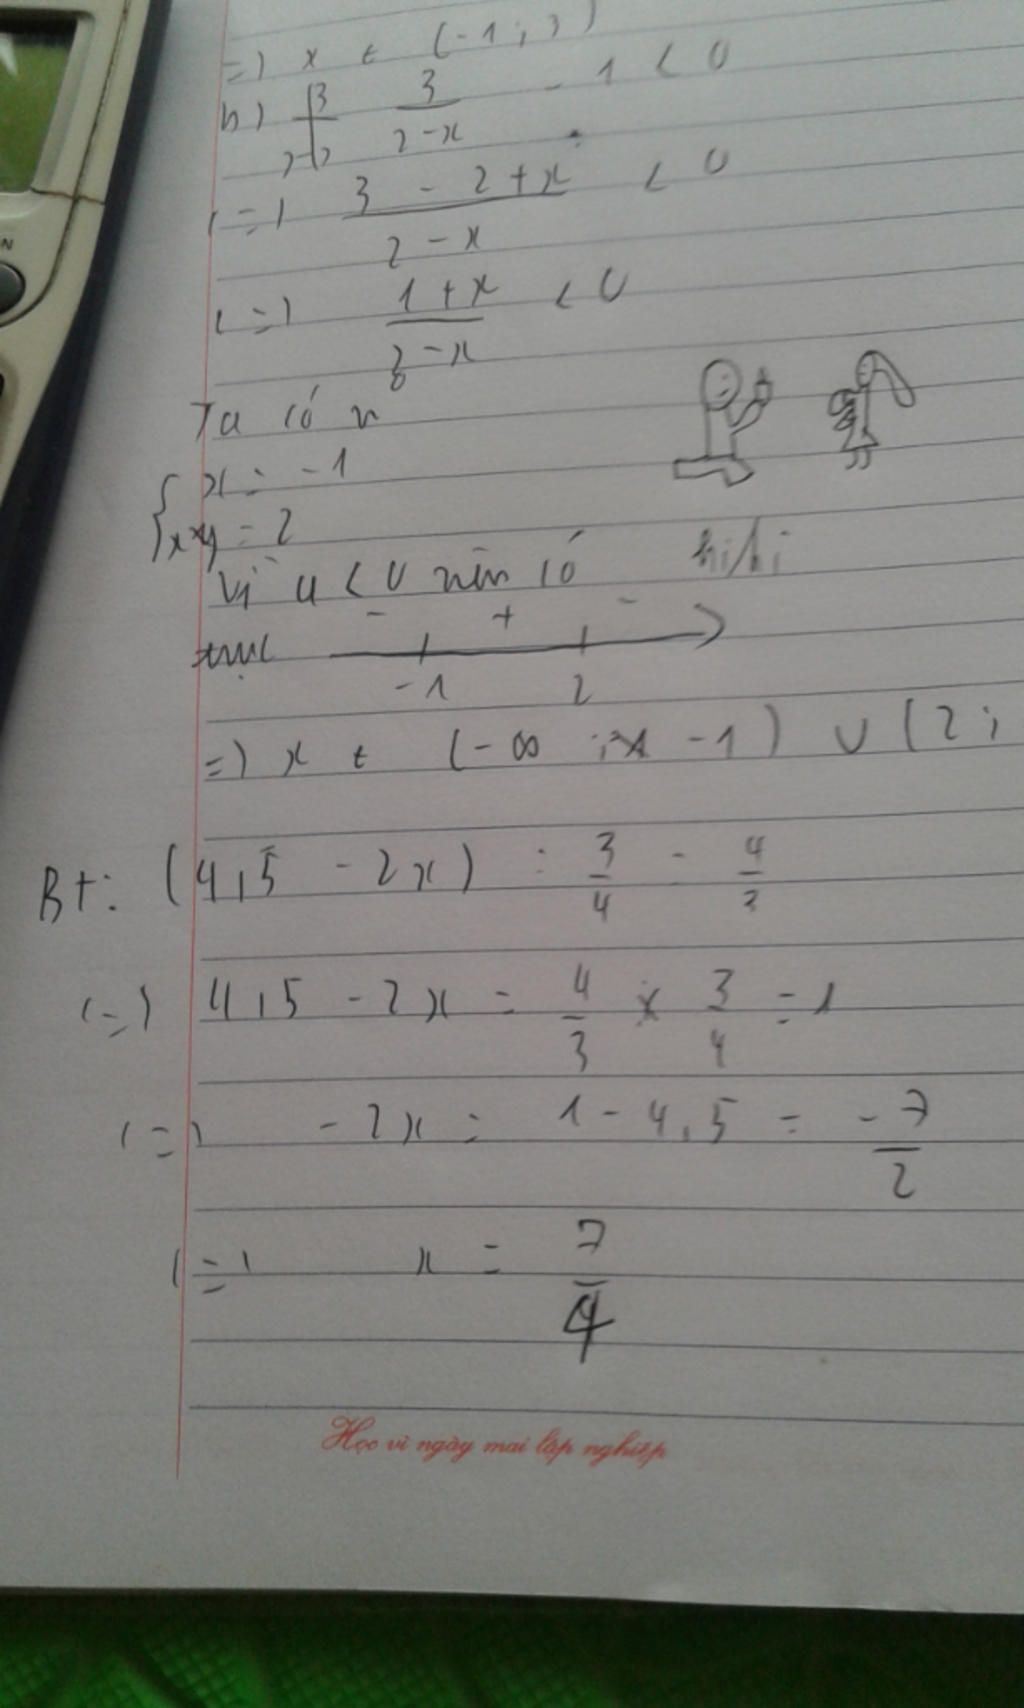 =) x ε (-1; 3)
b) 3/(2-x) - 1 < 0
(=) (3 - 2 + x)/(2 - x) < 0
(=) (1 + x)/(2 - x) < 0
Ta có
{ x = -1
x = 2
Vì < 0 nên có
hihi
- + -
trục
-1 2
=) x ε (-∞ ; -1) ∪ (2;
Bt: (4,5 - 2x) : 3/4 = 4/3
(=) 4,5 - 2x = 4/3 x 3/4 = 1
(=) -2x = 1 - 4,5 = -7/2
(=) x = 7/4
Học vì ngày mai lập nghiệp
N